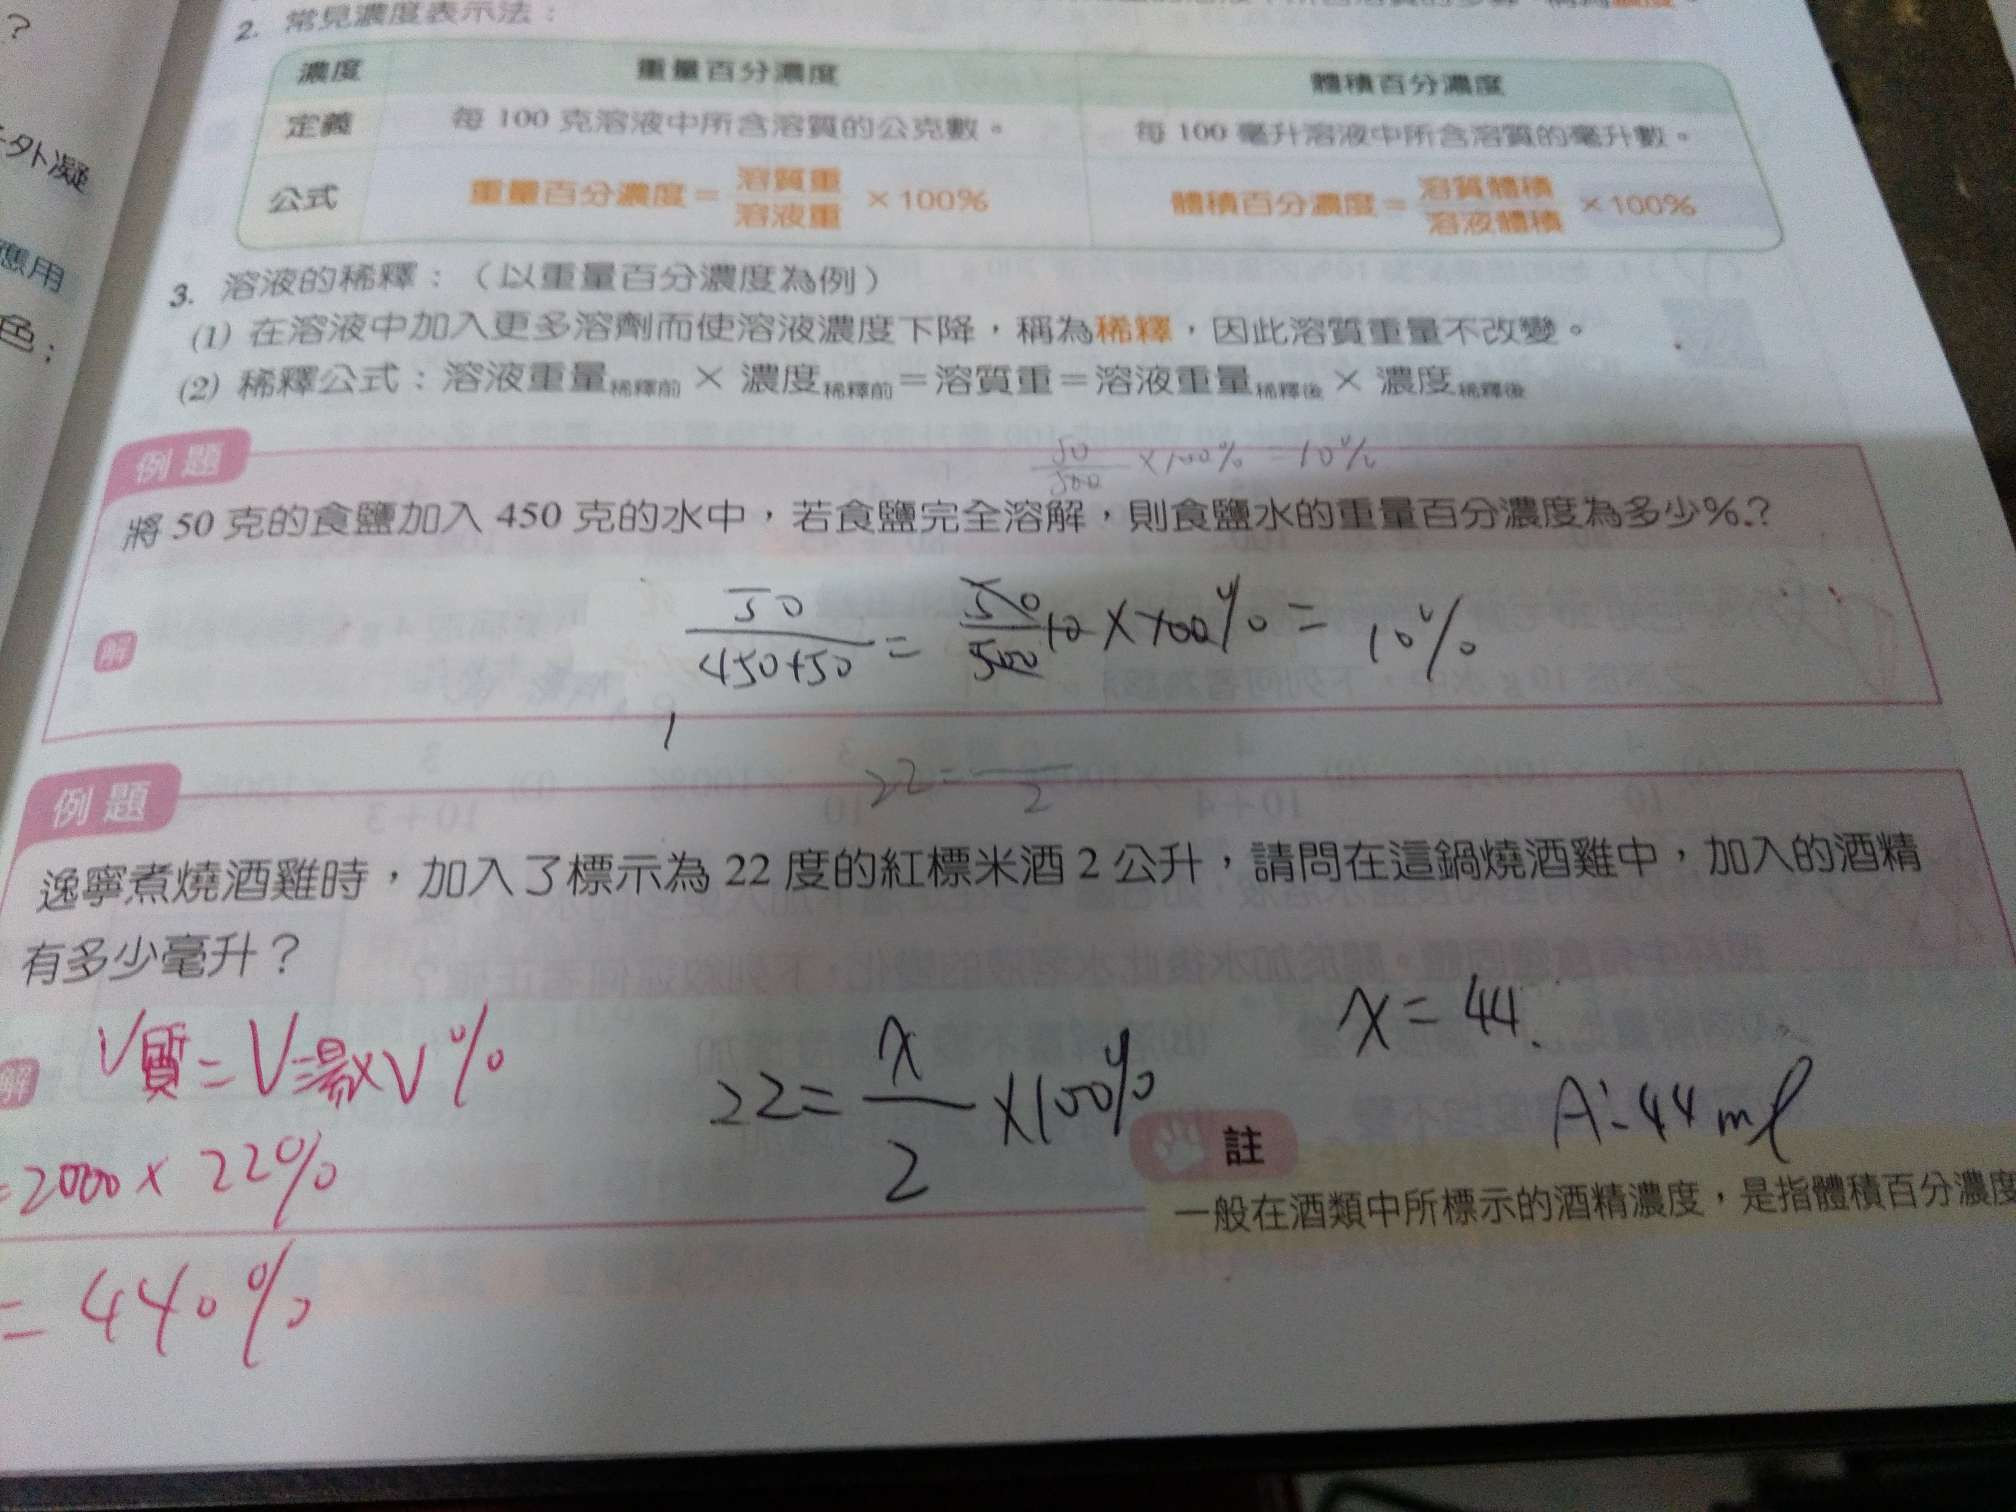 ?
外凝
應用
色；
2. 常見濃度表示法：
濃度 重量百分濃度 體積百分濃度
定義 每 100 克溶液中所含溶質的公克數。 每 100 毫升溶液中所含溶質的毫升數。
公式 重量百分濃度＝溶質重/溶液重 ×100% 體積百分濃度＝溶質體積/溶液體積 ×100%
3. 溶液的稀釋：（以重量百分濃度為例）
(1) 在溶液中加入更多溶劑而使溶液濃度下降，稱為稀釋，因此溶質重量不改變。
(2) 稀釋公式：溶液重量稀釋前 × 濃度稀釋前＝溶質重＝溶液重量稀釋後 × 濃度稀釋後
例題
50/500 ×100% =10%
將 50 克的食鹽加入 450 克的水中，若食鹽完全溶解，則食鹽水的重量百分濃度為多少%？
解
50/450+50 = 50/500 10 ×100% = 10%
22= /2
例題
逸寧煮燒酒雞時，加入了標示為 22 度的紅標米酒 2 公升，請問在這鍋燒酒雞中，加入的酒精
有多少毫升？
解
V質=V湯×V%
=2000×22%
=440%
22= x/2 ×100%
x=44.
A:44ml
註
一般在酒類中所標示的酒精濃度，是指體積百分濃度